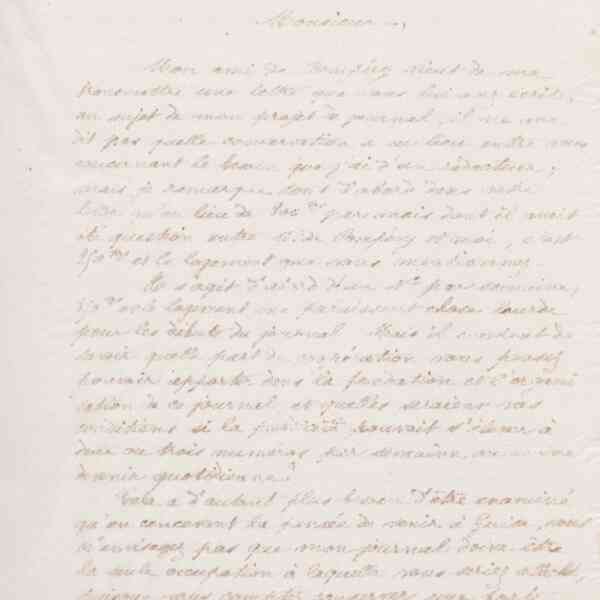 Monsieur,
Mon ami de vient de me
transmettre une lettre que vous lui avez écrite,
au sujet de mon projet de journal, il ne me
dit pas quelle conversation a eu lieu entre vous
concernant le besoin que j'ai d'un rédacteur ;
mais je remarque tout d'abord dans votre
lettre qu'au lieu de par mois dont il avait
été question entre M. de et moi, c'est
et le logement que vous mentionnez.
Il s'agit d'abord d'un N° par semaine,
et le logement me paraissent chose lourde
pour les débuts du journal. Mais il convient de
savoir quelle part de vous pensez
pouvoir apporter dans la fondation et l'organi
sation de ce journal et quelles seraient vos
conditions si la pouvait s'élever à
deux ou trois numéros par semaine, ou même
devenir quotidienne ?
Cela a d'autant plus besoin d'être examiné
qu'en concevant la pensée de venir à , vous
n'envisagez pas que mon journal doive être
la seule occupation à laquelle vous seriez attelé,
puisque vous comptez conserver